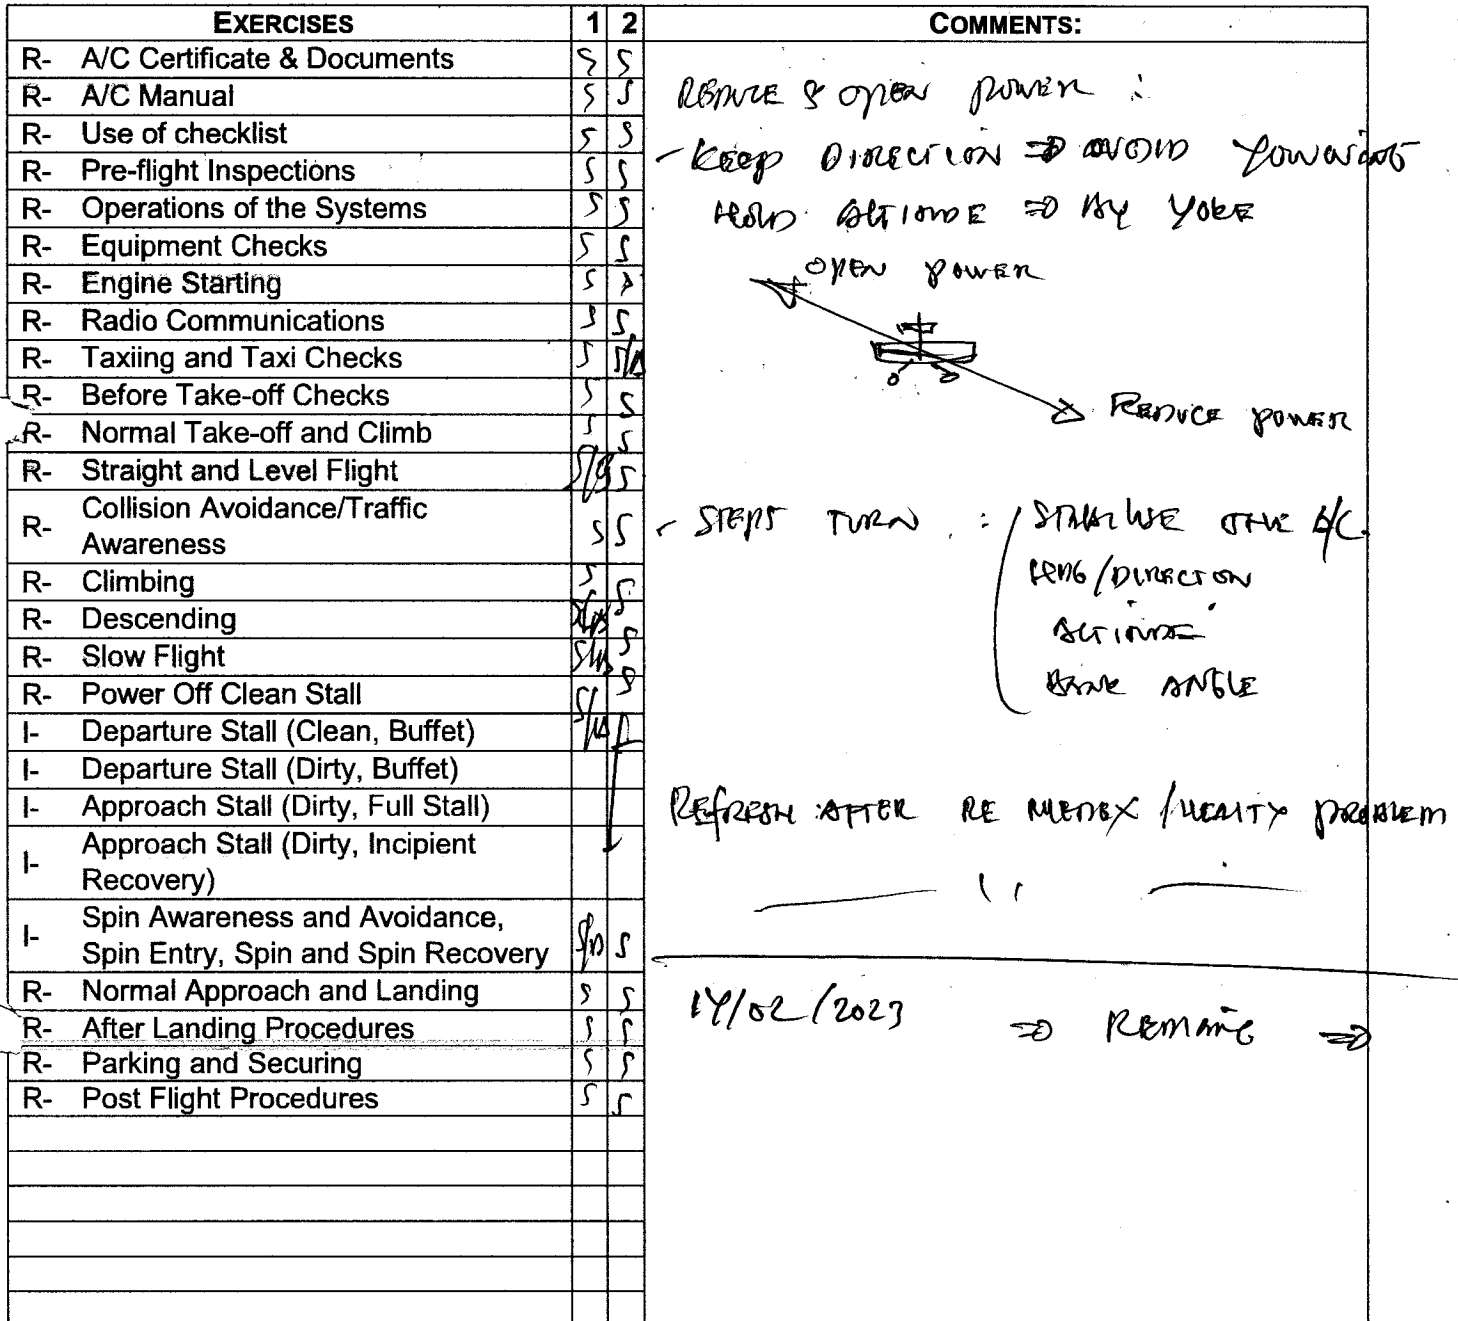 EXERCISES 1 2 COMMENTS:
R- A/C Certificate & Documents S S
R- A/C Manual S S
R- Use of checklist S S
R- Pre-flight Inspections S S
R- Operations of the Systems S S
R- Equipment Checks S S
R- Engine Starting S
R- Radio Communications S S
R- Taxiing and Taxi Checks S
R- Before Take-off Checks S S
R- Normal Take-off and Climb S S
R- Straight and Level Flight S
R- Collision Avoidance/Traffic
Awareness S S
R- Climbing S S
R- Descending S
R- Slow Flight S
R- Power Off Clean Stall
I- Departure Stall (Clean, Buffet)
I- Departure Stall (Dirty, Buffet)
I- Approach Stall (Dirty, Full Stall)
I- Approach Stall (Dirty, Incipient
Recovery)
I- Spin Awareness and Avoidance,
Spin Entry, Spin and Spin Recovery S
R- Normal Approach and Landing S S
R- After Landing Procedures S S
R- Parking and Securing S S
R- Post Flight Procedures S S
REDUCE & OPEN POWER :
- KEEP DIRECTION ⇒ AVOID
HOLD ⇒ BY YOKE
OPEN POWER
REDUCE POWER
- TURN : THE A/C.
HDG/DIRECTION
BANK ANGLE
REFRESH AFTER RE PROBLEM
/02/2023 ⇒ ⇒